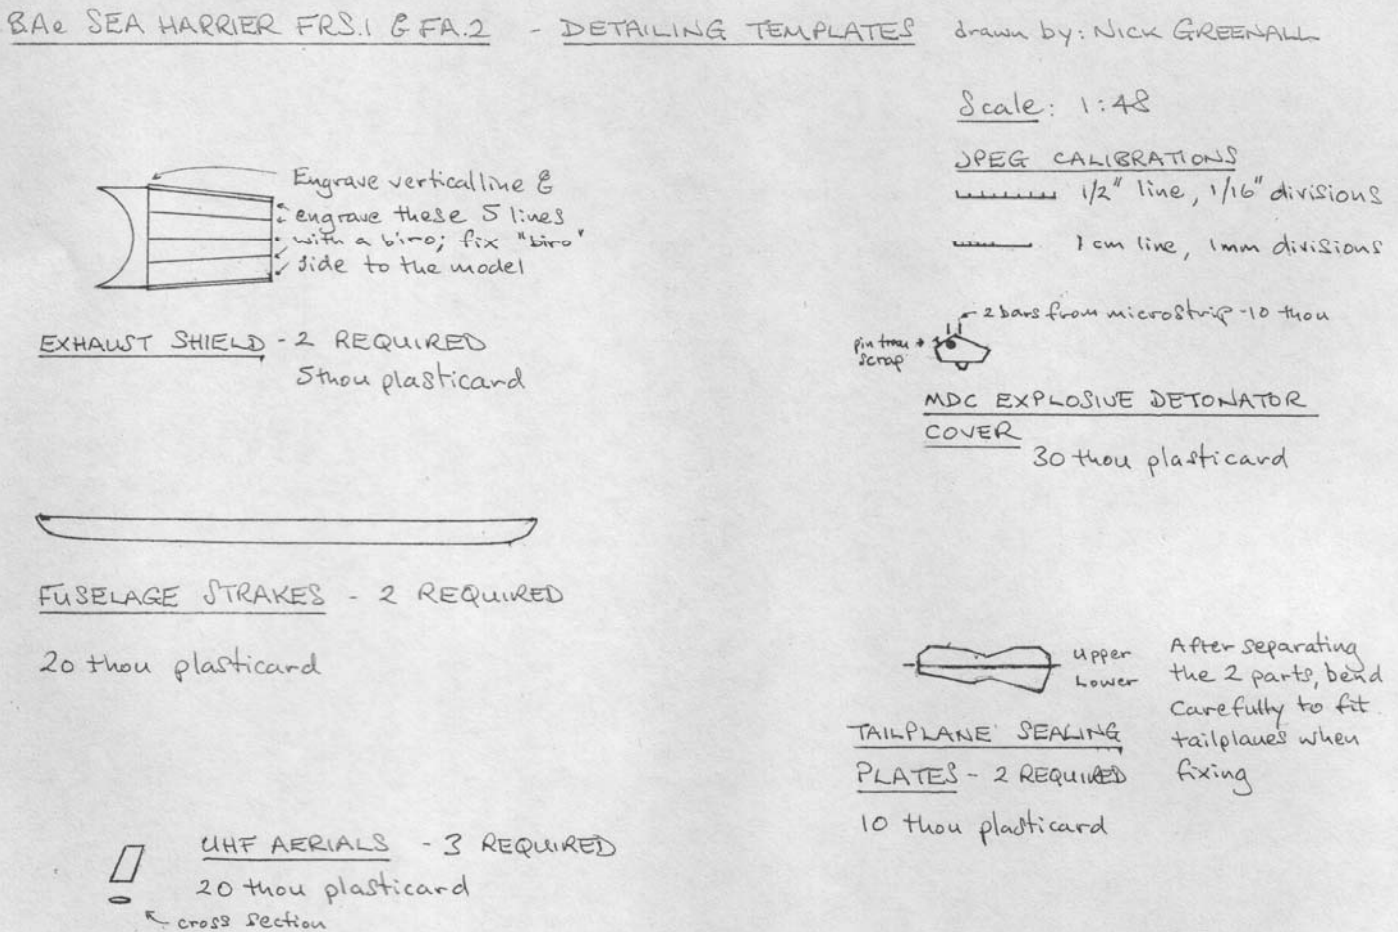 BAe SEA HARRIER FRS.1 & FA.2 - DETAILING TEMPLATES drawn by: NICK GREENALL
Scale: 1:48
JPEG CALIBRATIONS
1/2" line, 1/16" divisions
1 cm line, 1mm divisions
Engrave vertical line &
engrave these 5 lines
with a biro; fix "biro"
side to the model
EXHAUST SHIELD - 2 REQUIRED
5thou plasticard
2 bars from microstrip - 10 thou
pin from
scrap
MDC EXPLOSIVE DETONATOR
COVER
30 thou plasticard
FUSELAGE STRAKES - 2 REQUIRED
20 thou plasticard
Upper
Lower
After separating
the 2 parts, bend
carefully to fit
tailplanes when
fixing
TAILPLANE SEALING
PLATES - 2 REQUIRED
10 thou plasticard
UHF AERIALS - 3 REQUIRED
20 thou plasticard
cross section